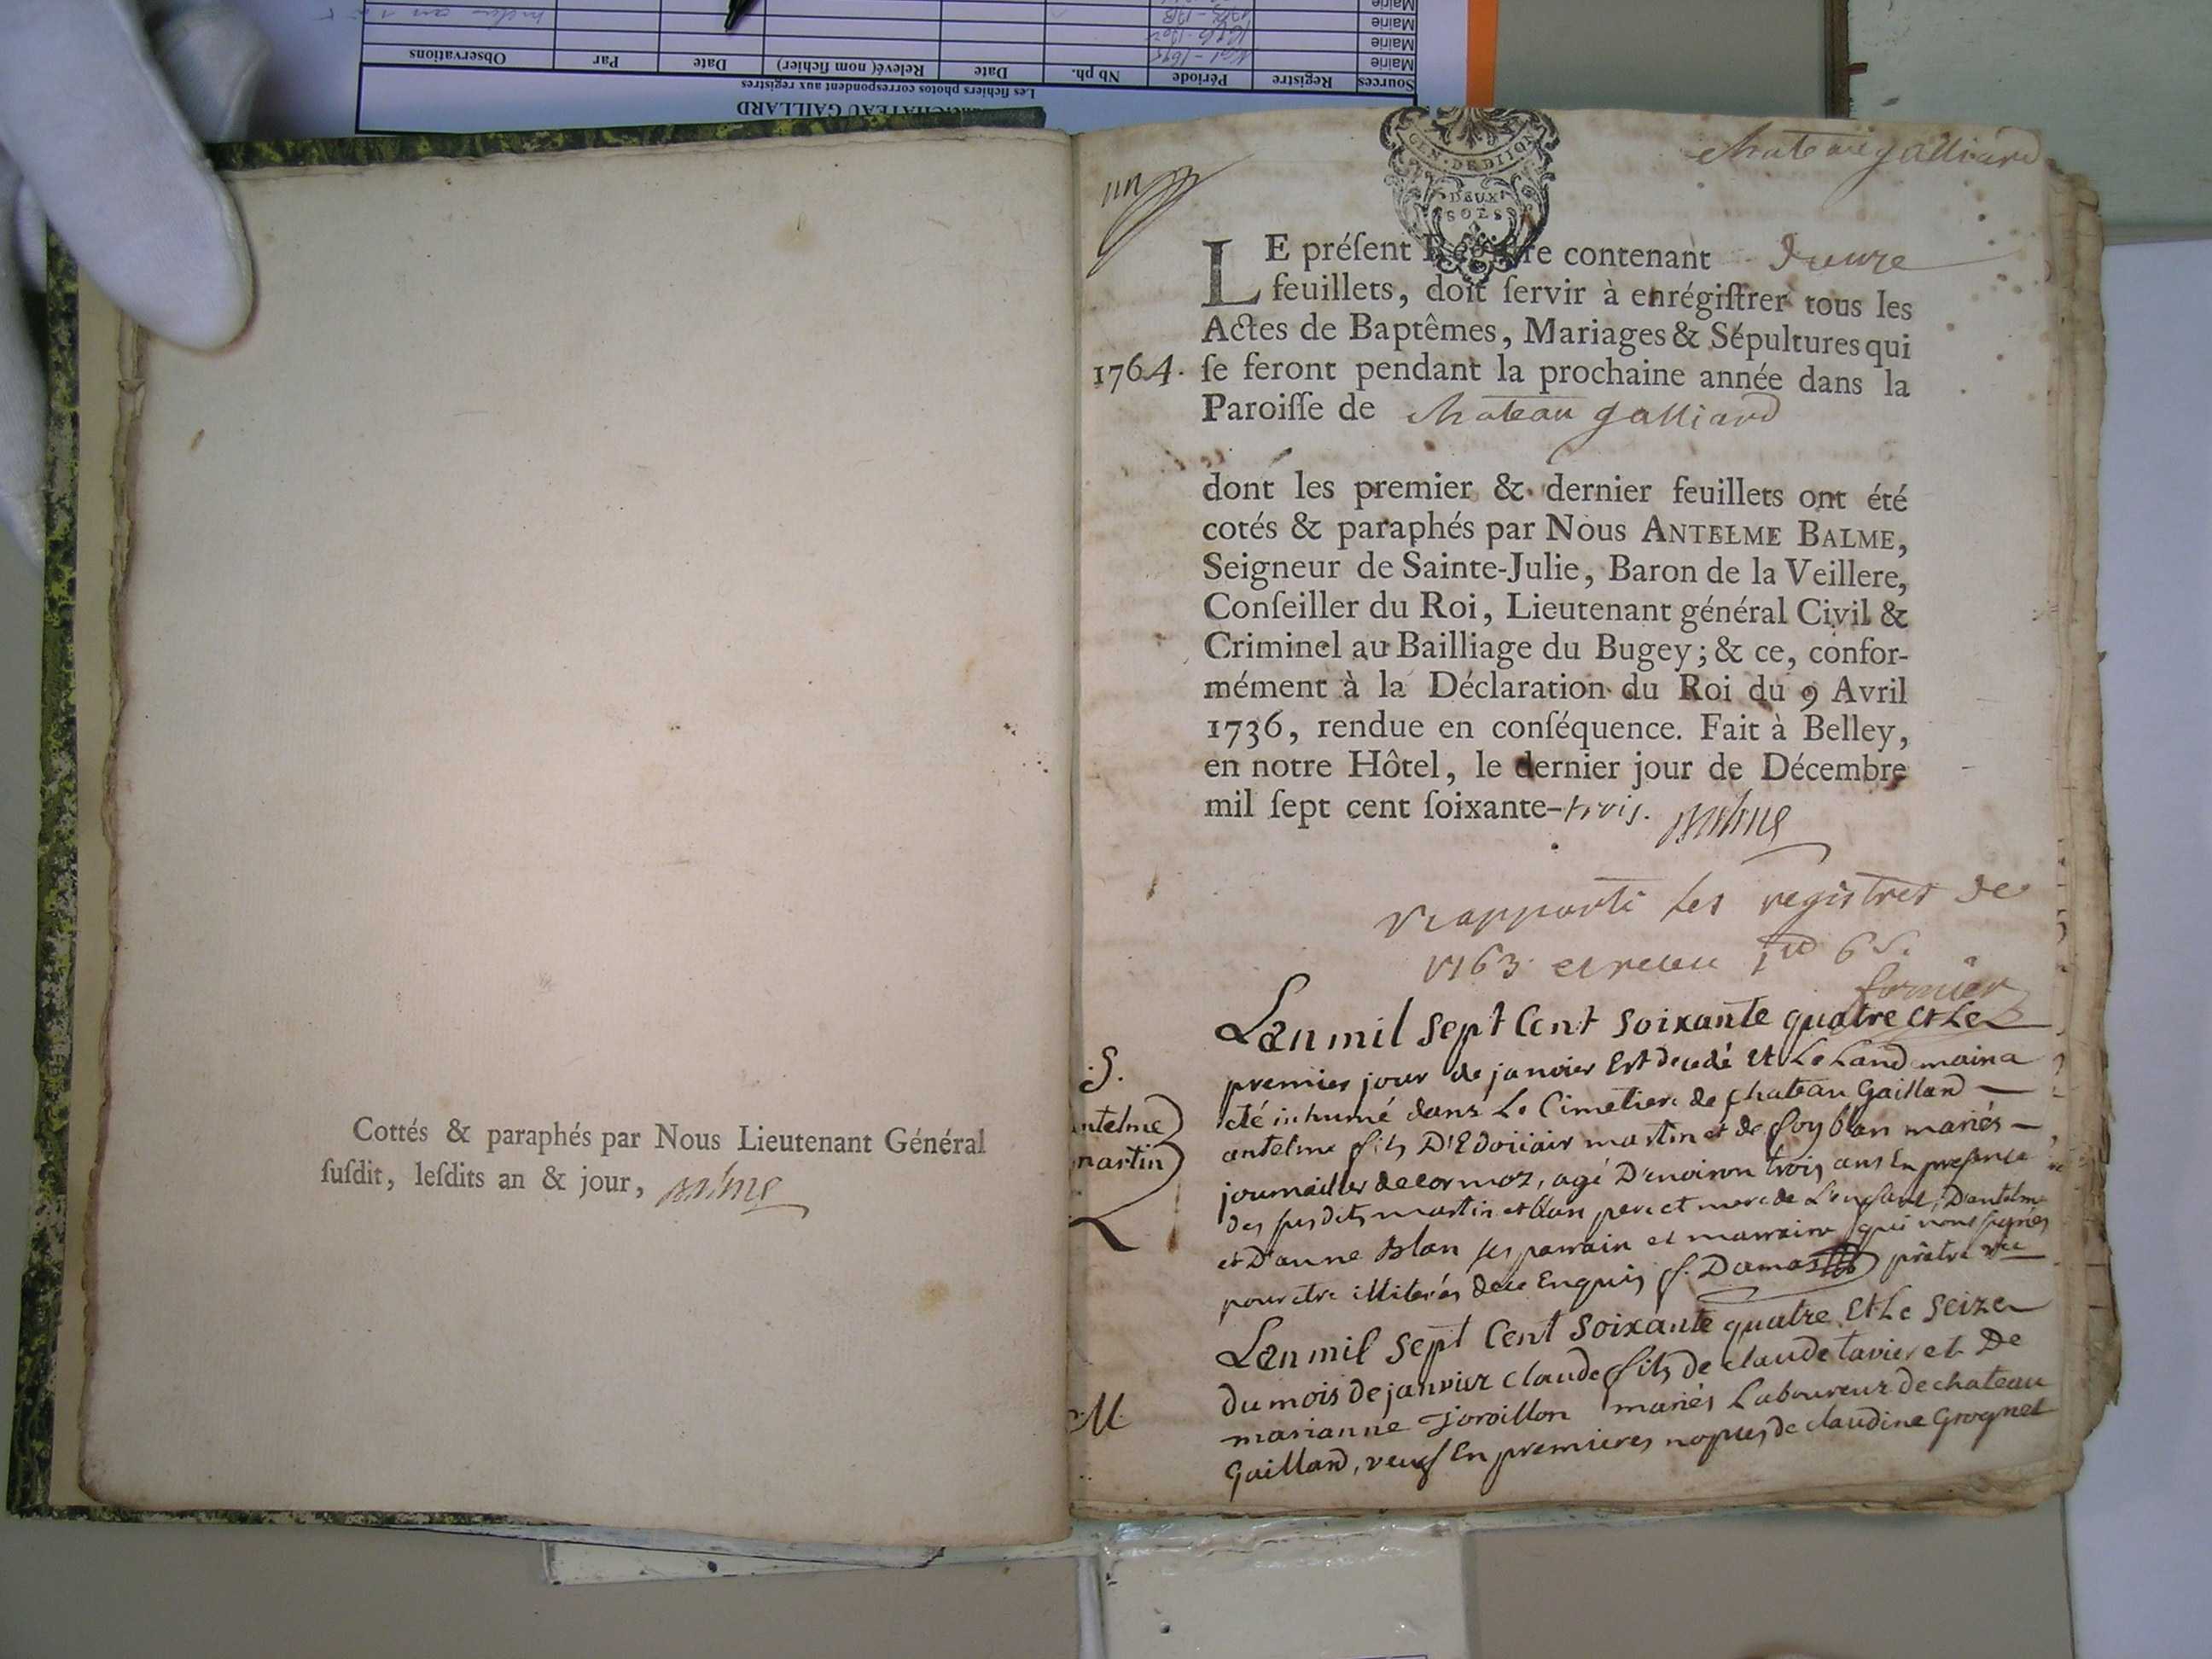 CHATEAU GAILLARD
Les fichiers photos correspondent aux registres
Sources Registre Période Nb ph. Date Relevé( nom fichier) Date Par Observations
Mairie
Mairie
Mairie
Mairie
Cottés & paraphés par Nous Lieutenant Général
suſdit, leſdits an & jour,
GEN·DE DIJON
DEUX
SOLS
chateau galliard
LE préſent Régiſtre contenant douze
feuillets, doit ſervir à enrégiſtrer tous les
Actes de Baptêmes, Mariages & Sépultures qui
1764. ſe feront pendant la prochaine année dans la
Paroiſſe de chateau galliard
dont les premier & dernier feuillets ont été
cotés & paraphés par Nous ANTELME BALME,
Seigneur de Sainte-Julie, Baron de la Veillere,
Conſeiller du Roi, Lieutenant général Civil &
Criminel au Bailliage du Bugey; & ce, confor-
mément à la Déclaration du Roi du 9 Avril
1736, rendue en conſéquence. Fait à Belley,
en notre Hôtel, le dernier jour de Décembre
mil ſept cent ſoixante-trois.
rapporté les registres de
1763
Lan mil sept Cent soixante quatre et Le
premier jour de janvier Est decedé et Le Landmain a
eté inhumé dans Le Cimetiere de chateau Gaillard
antelme fils D'Edoüair martin et de foy blan mariés
journailler de cormoz, agé D'environ trois ans En presence
des susdits martin et blan pere et mere de L'enfant, D'antelme
et D'anne Blan ses parrain et marraine qui nont signés
pour etre illiterés de ce Enquis f. Damas prêtre vic
S.
antelme
martin
Lan mil sept Cent soixante quatre Et Le seize
du mois de janvier claude fils de claude tavier et De
marianne joroillon mariés Laboureur de chateau
Gaillard, veuf En premieres nopces de claudine Grognet
M.